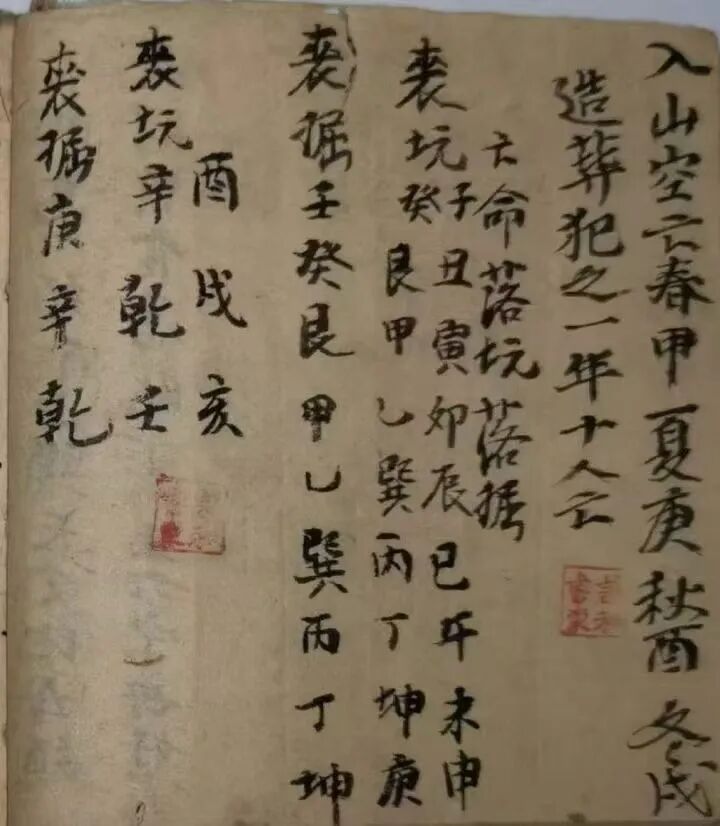 入山空亡春甲夏庚秋酉冬戌
造葬犯之一年十人亡
亡命落坑落掘
子丑寅卯辰巳午未申
裵坑癸艮甲乙巽丙丁坤庚
裵掘壬癸艮甲乙巽丙丁坤
酉戌亥
裵坑辛乾壬
裵掘庚辛乾